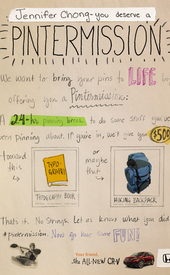 Jennifer Chong-you deserve a
PINTERMISSION
We want to bring your pins to LIFE by
offering you a Pintermission:
A 24-hr pinning break to do some stuff you've
been pinning about. If you're in, we'll give you $500
toward this
or maybe that
TYPOGRAPHY
TYPOGRAPHY BOOK
HIKING BACKPACK
That's it. No Strings. Let us know what you did
#pintermission. Now go have some FUN!
Your friend,
the ALL NEW CR-V